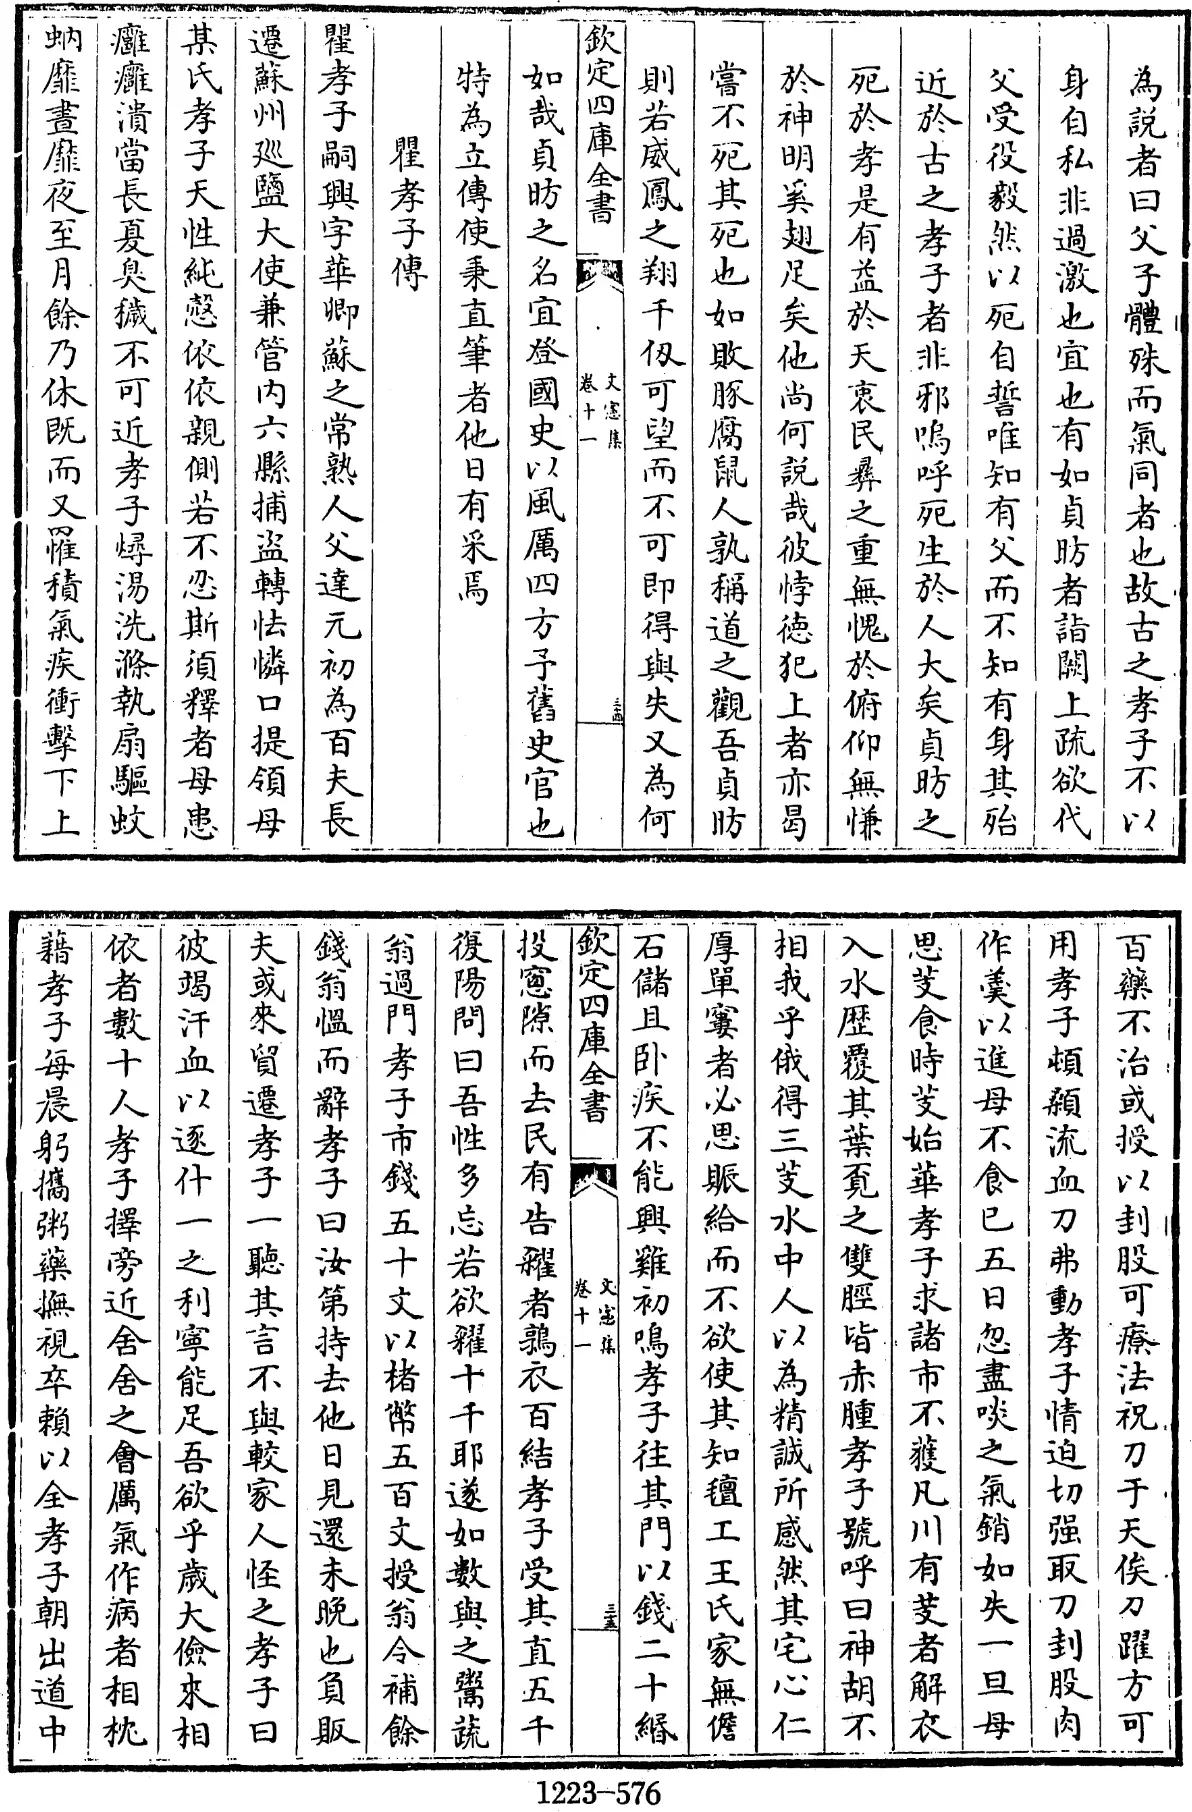 為説者曰父子體殊而氣同者也故古之孝子不以
身自私非過激也宜也有如貞昉者詣闕上疏欲代
父受役毅然以死自誓唯知有父而不知有身其殆
近於古之孝子者非邪嗚呼死生於人大矣貞昉之
死於孝是有益於天衷民彞之重無愧於俯仰無慊
於神明奚翅足矣他尚何説哉彼悖德犯上者亦曷
嘗不死其死也如敗豚腐鼠人孰稱道之觀吾貞昉
則若威鳳之翔千仭可望而不可即得與失又為何
欽定四庫全書
文憲集
卷十一
三十四
如哉貞昉之名宜登國史以風厲四方予舊史官也
特為立傳使秉直筆者他日有采焉
瞿孝子傳
瞿孝子嗣興字華卿蘇之常熟人父達元初為百夫長
遷蘇州廵鹽大使兼管内六縣捕盗轉怯憐口提領母
某氏孝子天性純慤依依親側若不忍斯須釋者母患
癰癰潰當長夏臭穢不可近孝子燖湯洗滌執扇驅蚊
蚋靡晝靡夜至月餘乃休既而又罹積氣疾衝擊下上
百藥不治或授以刲股可療法祝刀于天俟刀躍方可
用孝子頓顙流血刀弗動孝子情迫切强取刀刲股肉
作羹以進母不食已五日忽盡啖之氣銷如失一旦母
思芡食時芡始華孝子求諸市不獲凡川有芡者解衣
入水歴覆其葉覔之雙脛皆赤腫孝子號呼曰神胡不
相我乎俄得三芡水中人以為精誠所感然其宅心仁
厚單窶者必思賑給而不欲使其知氊工王氏家無儋
石儲且卧疾不能興雞初鳴孝子往其門以錢二十緡
欽定四庫全書
文憲集
卷十一
三十五
投窻隙而去民有告糴者鶉衣百結孝子受其直五千
復陽問曰吾性多忘若欲糴十千耶遂如數與之鬻蔬
翁過門孝子市錢五十文以楮幣五百文授翁令補餘
錢翁愠而辭孝子曰汝第持去他日見還未晚也負販
夫或來貿遷孝子一聽其言不與較家人怪之孝子曰
彼竭汗血以逐什一之利寧能足吾欲乎歳大儉來相
依者數十人孝子擇旁近舍舍之會厲氣作病者相枕
藉孝子每晨躬攜粥藥撫視卒賴以全孝子朝出道中
1223-576